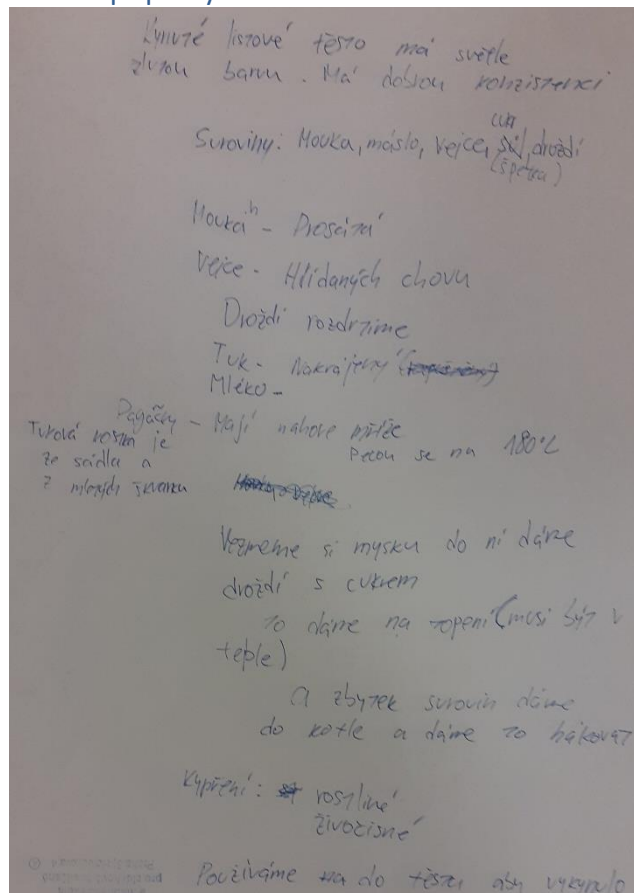 Kynuté listové těsto má světle
žlutou barvu. Má dobrou konzistenci
Suroviny: Mouka, máslo, vejce, cukr, sůl, droždí
(špetka)
Mouka - Prosátá
Vejce - Hlídaných chovu
Droždí rozdrtíme
Tuk - Nakrájený
Mléko -
Pagáčky - Mají nahore mříže
Pečou se na 180°C
Tuková je
ze sádla a
z mletých škvarku
Vezmeme si mysku do ní dáme
droždí s cukrem
To dáme na topení (musí být v
teple)
A zbytek surovin dáme
do kotle a dáme to hákovat
Kypření: rostliné
živočisné
Používáme do těsta aby vykynulo